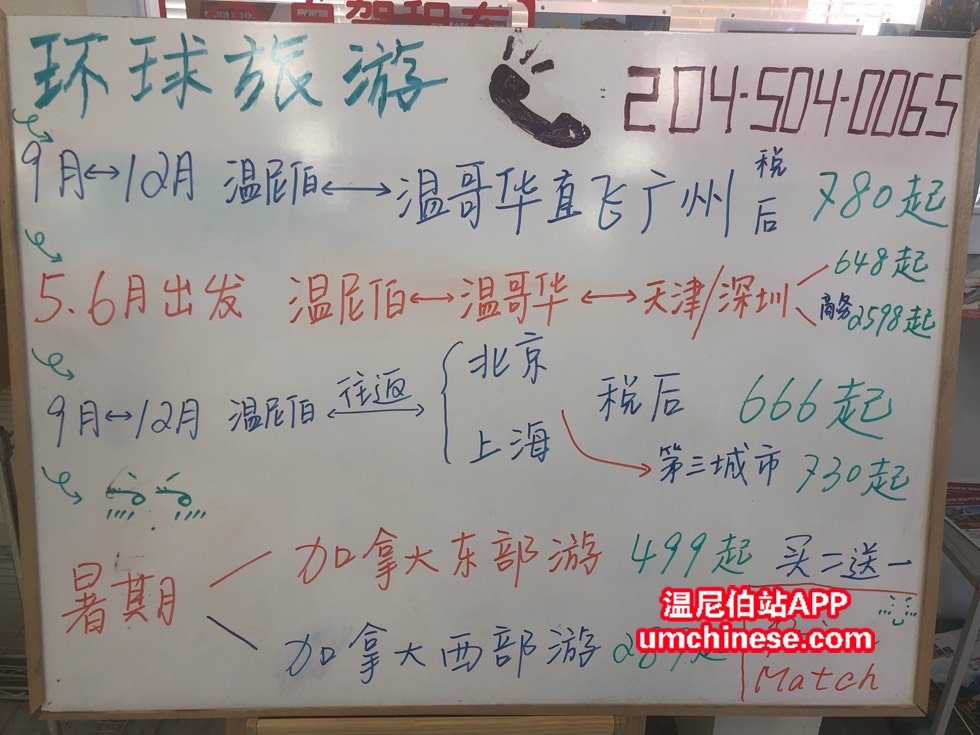 自驾租车
环球旅游 204-504-0065
9月↔12月 温尼伯↔温哥华直飞广州 税后 780起
5、6月出发 温尼伯↔温哥华↔天津/深圳 648起
商务2598起
9月↔12月 温尼伯 往返 北京 上海 税后 666起
第三城市 730起
暑期 加拿大东部游 499起 买二送一
加拿大西部游
Match
温尼伯站APP
umchinese.com